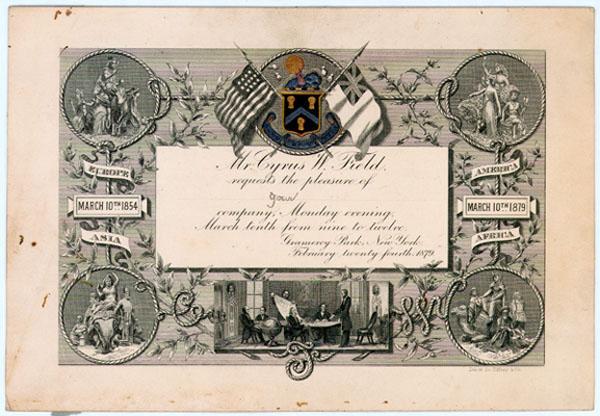 Mr. Cyrus W. Field
requests the pleasure of
your
company, Monday evening,
March tenth from nine to twelve
Gramercy Park, New York
February twenty fourth, 1879
EUROPE
MARCH 10TH 1854
ASIA
AMERICA
MARCH 10TH 1879
AFRICA